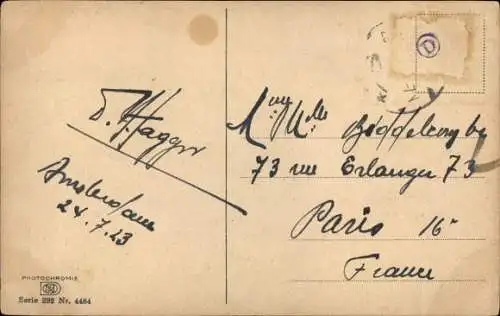 D. Haggr
Amsterdam
24.7.23
PHOTOCHROMIE
Serie 292 Nr. 4484
D
Mme Mlle
73 rue Erlanger 73
Paris 16e
France